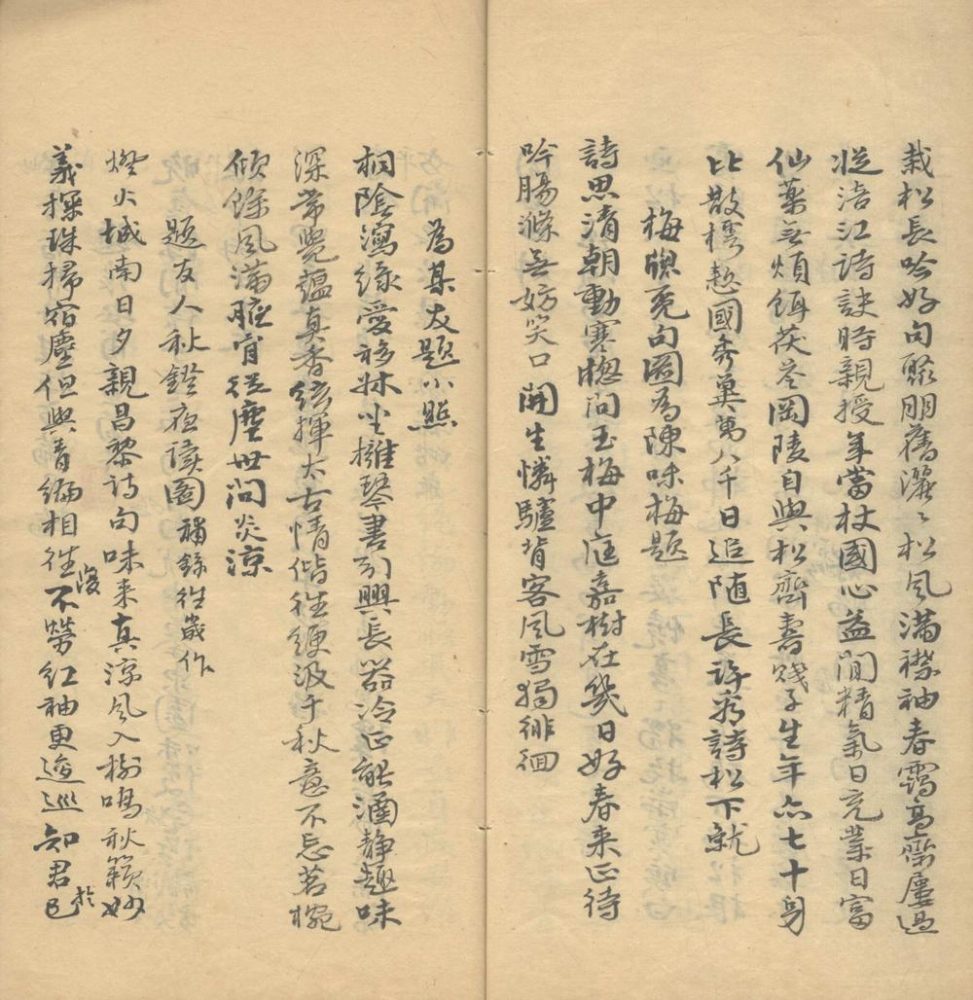 栽松長吟好句聚朋舊灑〻松风滿襟袖春靄高齋屢過
從浯江詩訣時親授年當杖國心益閒精氣日充業日富
仙藥无煩餌茯苓岡陵自與松齊壽賤子生年亦七十身
比散樗慙國秀蓂萬八千日追随長許看詩松下就
梅牕覓句圖為陳味梅題
詩思清朝動寒牕问玉梅中庭嘉樹在幾日好春来正待
吟腸滌无妨笑口開生憐驢背客風雪獨徘徊
為某友題小照
桐陰瀉緑愛移牀坐擁琴書引興長器冷正能涵静趣味
深常覺蘊真香絃揮太古情偕往綆汲千秋意不忘茗椀
傾餘风满腋肯從塵世问炎涼
題友人秋鐙夜讀圖補錄往歲作
燈火城南日夕親昌黎诗句味来真涼风入樹鳴秋籟妙
義探珠掃宿塵但與青編相往復不勞紅袖更逡巡知君已於